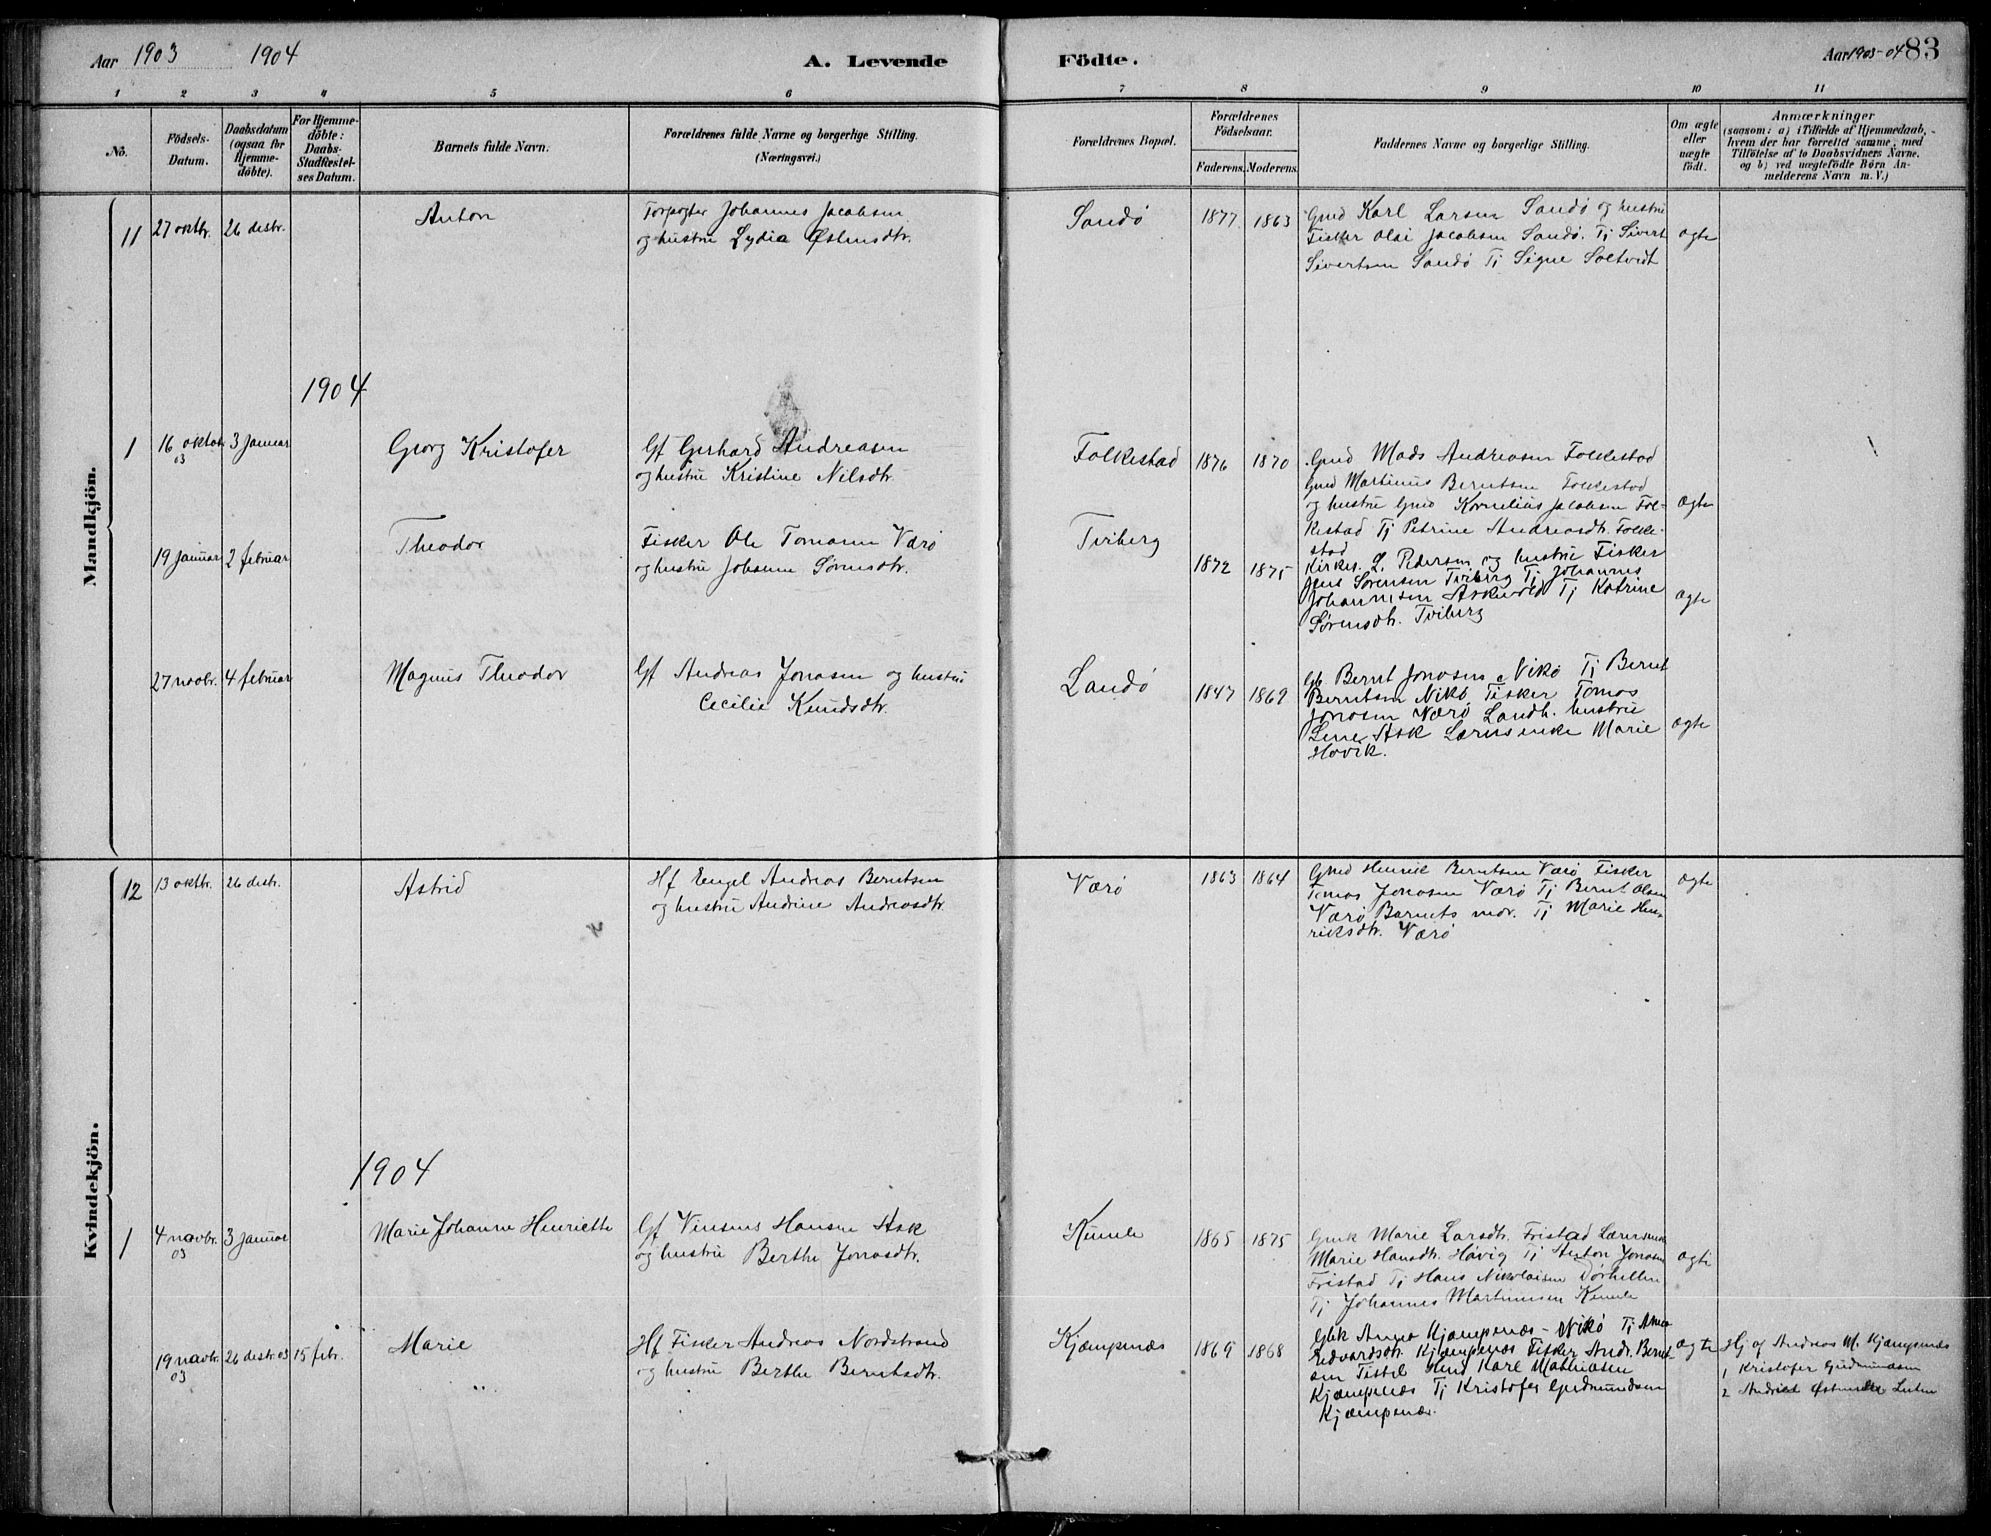 Aar 1903 1904
A. Levende Födte.
Aar 1903-04 83
1 2 3 4 5 6 7 8 9 10 11
No.
Födsels-Datum.
Daabsdatum (ogsaa for Hjemme-döbte).
For Hjemme-döbte: Daabs-Stadfæstel-ses Datum.
Barnets fulde Navn.
Forældrenes fulde Navne og borgerlige Stilling.
(Næringsvei.)
Forældrenes Bopæl.
Forældrenes Födselsaar.
Faderens. Moderens.
Faddernes Navne og borgerlige Stilling.
Om ægte eller uægte födt.
Anmærkninger
(saasom: a) i Tilfælde af Hjemmedaab,
hvem der har forrettet samme, med
Tilföielse af to Daabsvidners Navne,
og b) ved uægtefödte Börn An-
melderens Navn m. V.)
Mandkjön.
11 27 oktbr. 26 desbr. Anton
Johannes Jacobsen
og hustru Lydia
Sandö 1877 1863
Gmd Karl Larsen Sandö og hustru
Fisker Olai Jacobsen Sandö. Tj Sivert
Sivertsen Sandö Tj Signe Saltvedt
ægte
1904
1 16 oktobr 03 3 Januar Georg Kristofer
Gf Gerhard Andreasen
og hustru Kristine Nilsdtr.
Folkestad 1876 1870
Gmd Mads Andreasen Folkestad
Gmd Martinus Berntsen Folkestad
og hustru Gmd Kornelius Jacobsen Fol-
kestad Tj Petrine Andreasdtr. Folke-
stad
ægte
19 Januar 2 februar Theodor
Fisker Ole Tomasen Værö
og hustru Johanne Sörensdtr.
Tviberg 1872 1875
Kirkes. L. Pedersen og hustru Fisker
Jens Sörensen Tviberg Tj Johannes
Johannesen Askevold Tj Katrine
Sörensdtr. Tviberg
ægte
27 novbr. 4 februar Magnus Theodor
Gf Andreas Jonasen og hustru
Cecilie Knudsdtr.
Landö 1847 1869
Gb. Bernt Jonasen Nikö Tj Bernt
Berntsen Nikö Fisker Tomas
Jonasen Værö Landh. hustru
Lene Ask Lærerenke Marie
Høvik.
ægte
Kvindekjön.
12 13 oktbr. 26 desbr. Astrid
Hf Engel Andreas Berntsen
og hustru Andrine Andreasdtr.
Værö 1863 1864
Gmd Henrik Berntsen Værö Fisker
Tomas Jonasen Værö Tj Bernt Olsen
Værö Barnets mdr. Tj Marie Hen-
riksdtr. Værö
ægte
1904
1 4 novbr. 03 3 Januar Marie Johanne Henriette
Gf Vinsens Hansen Ask
og hustru Berthe Jonasdtr.
Kumle 1865 1875
Gmk Marie Larsdtr. Fristad
Marie Hansdtr. Høvig Tj Anton Jonasen
Fristad Tj Hans Nikolaisen
Tj Johannes Martinusen Kumle
ægte
19 novbr. 03 26 desbr. 03 15 febr. Marie
Hf Fisker Andreas Nordstrand
og hustru Berthe Berntsdtr.
Kjæmpenæs 1869 1868
Gbk Anna Kjæmpenæs - Nikö Tj Anna
Edvardsdtr. Kjæmpenæs Fisker Andr. Bernt-
sen Tistel Gmd Karl Mathiasen
Kjæmpenæs Tj Kristofer Gudmundsen
Kjæmpenæs.
ægte
Hj af Andreas M. Kjæmpnæs
1 Kristofer Gudmundsen
2 Andrea